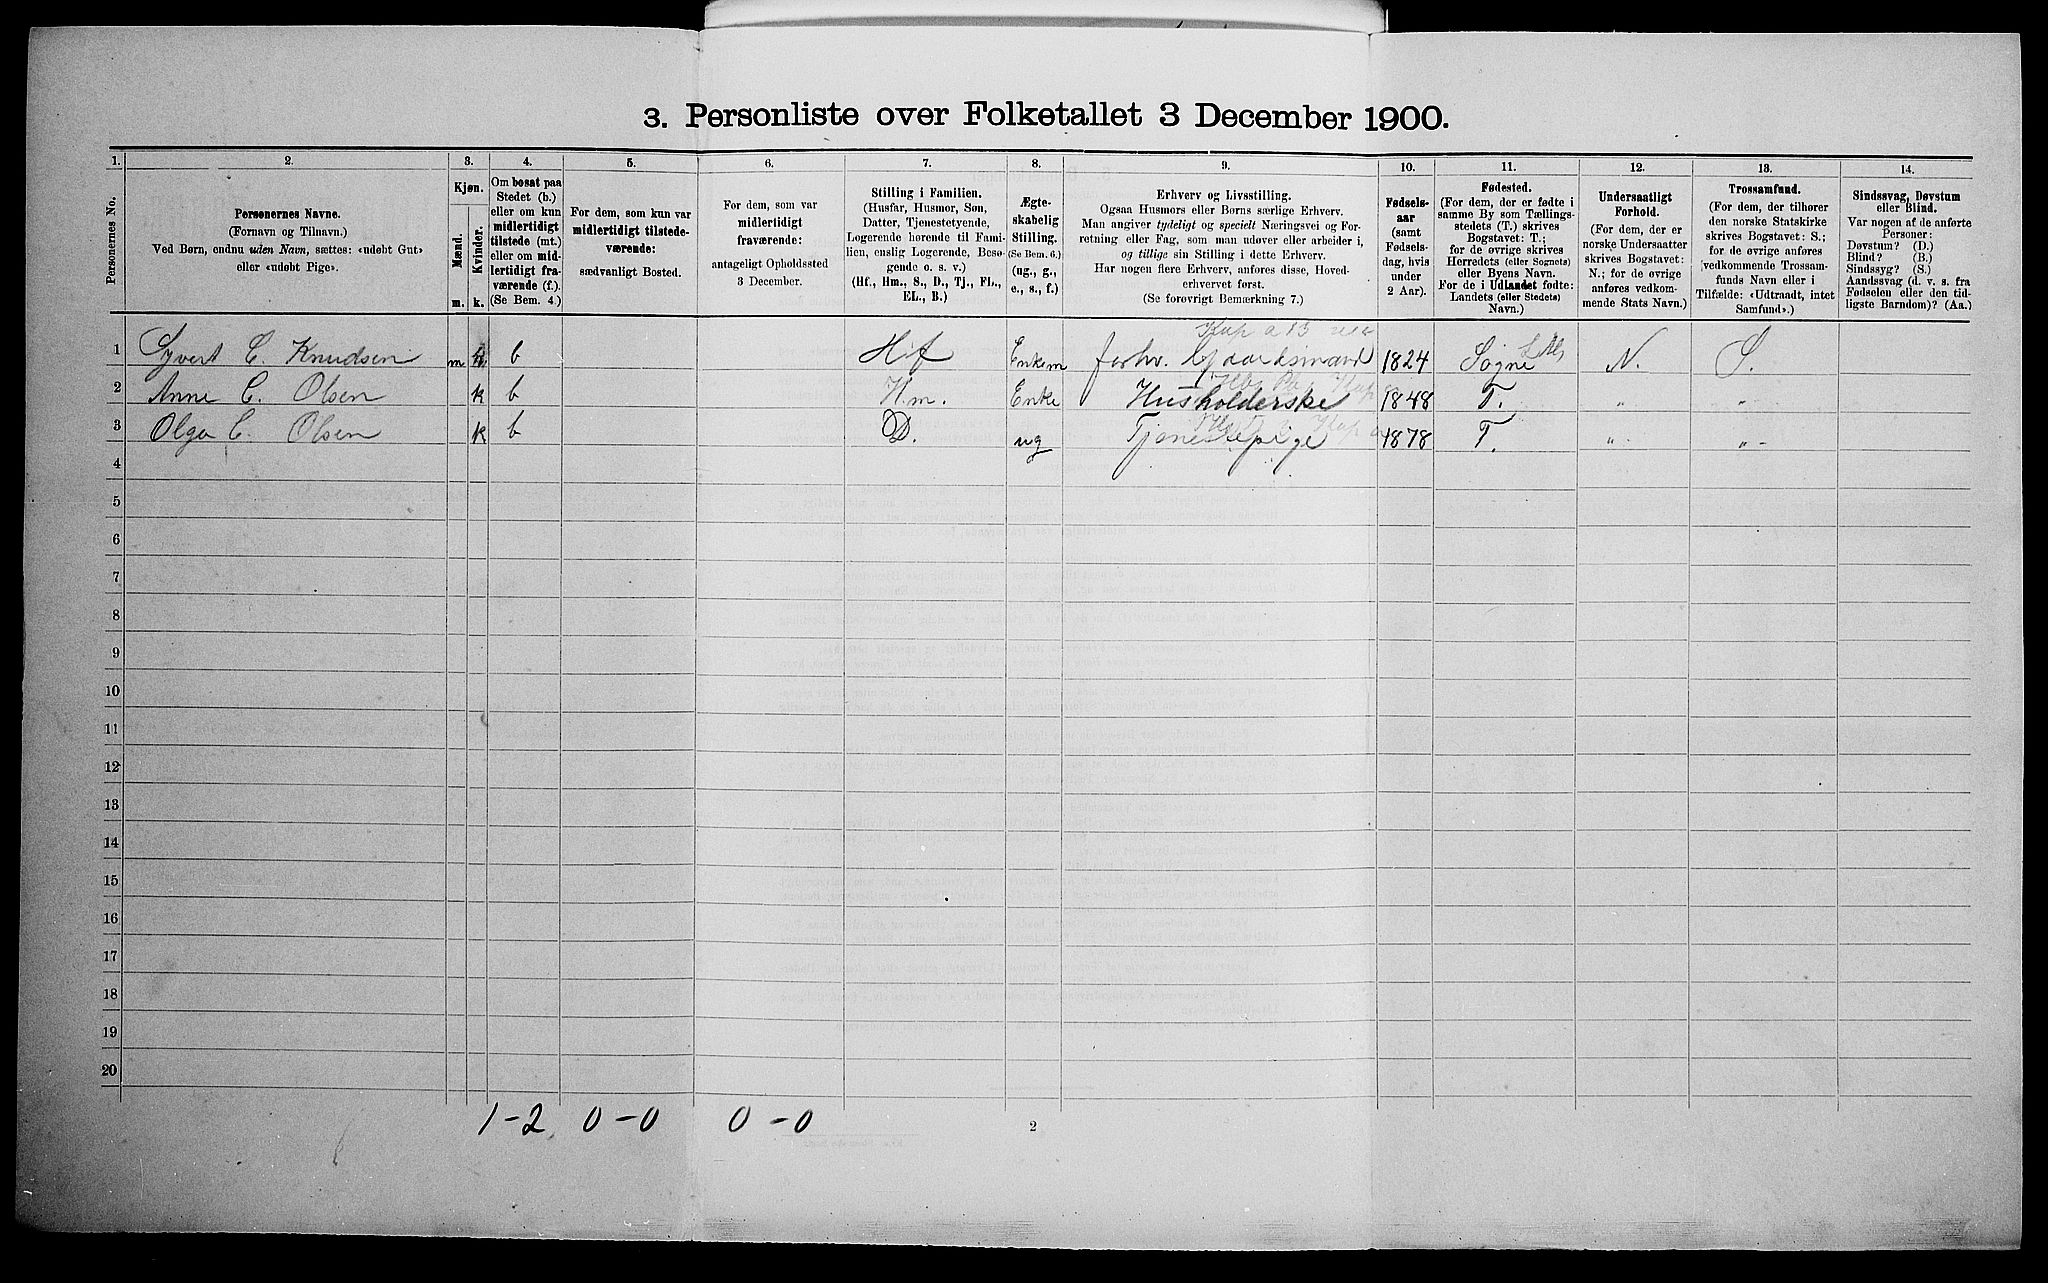 3. Personliste over Folketallet 3 December 1900.
1. 2. 3. 4. 5. 6. 7. 8. 9. 10. 11. 12. 13. 14.
Personernes No.
Personernes Navne.
(Fornavn og Tilnavn.)
Ved Børn, endnu uden Navn, sættes: «udøbt Gut»
eller «udøbt Pige».
Kjøn.
Mænd.
Kvinder.
m. k.
Om bosat paa
Stedet (b.)
eller om kun
midlertidigt
tilstede (mt.)
eller om mid-
lertidigt fra-
værende (f.).
(Se Bem. 4.)
For dem, som kun var
midlertidigt tilstede-
værende:
sædvanligt Bosted.
For dem, som var
midlertidigt
fraværende:
antageligt Opholdssted
3 December.
Stilling i Familien.
(Husfar, Husmor, Søn,
Datter, Tjenestetyende,
Logerende hørende til Fami-
lien, enslig Logerende, Besø-
gende o. s. v.)
(Hf., Hm., S., D., Tj., FL.,
EL., B.)
Ægte-
skabelig
Stilling.
(Se Bem. 6.)
(ug., g.,
e., s., f.)
Erhverv og Livsstilling.
Ogsaa Husmors eller Børns særlige Erhverv.
Man angiver tydeligt og specielt Næringsvei og For-
retning eller Fag, som man udøver eller arbeider i,
og tillige sin Stilling i dette Erhverv.
Har nogen flere Erhverv, anføres disse, Hoved-
erhvervet først.
(Se forøvrigt Bemærkning 7.)
Fødsels-
aar
(samt
Fødsels-
dag, hvis
under
2 Aar).
Fødested.
(For dem, der er fødte i
samme By som Tællings-
stedets (T.) skrives
Bogstavet: T.;
for de øvrige skrives
Herredets (eller Sognets)
eller Byens Navn.
For de i Udlandet fødte:
Landets (eller Stedets)
Navn.)
Undersaatligt
Forhold.
(For dem, der er
norske Undersaatter
skrives Bogstavet:
N.; for de øvrige
anføres vedkom-
mende Stats Navn.)
Trossamfund.
(For dem, der tilhører
den norske Statskirke
skrives Bogstavet: S.;
for de øvrige anføres
vedkommende Trossam-
funds Navn eller i
Tilfælde: «Udtraadt, intet
Samfund».)
Sindssvag, Døvstum
eller Blind.
Var nogen af de anførte
Personer:
Døvstum? (D.)
Blind? (B.)
Sindssyg? (S.)
Aandssvag (d. v. s. fra
Fødselen eller den tid-
ligste Barndom)? (Aa.)
1 Syvert C. Knudsen m b Hf Enkem forhv. Gaardsmand 1824 Søgne N. S.
2 Anne C. Olsen k b Hm. Enke Husholderske 1848 T. " "
3 Olga C. Olsen k b D. ug Tjenestepige 1878 T. " "
4
5
6
7
8
9
10
11
12
13
14
15
16
17
18
19
20
1-2 0-0 0-0
2